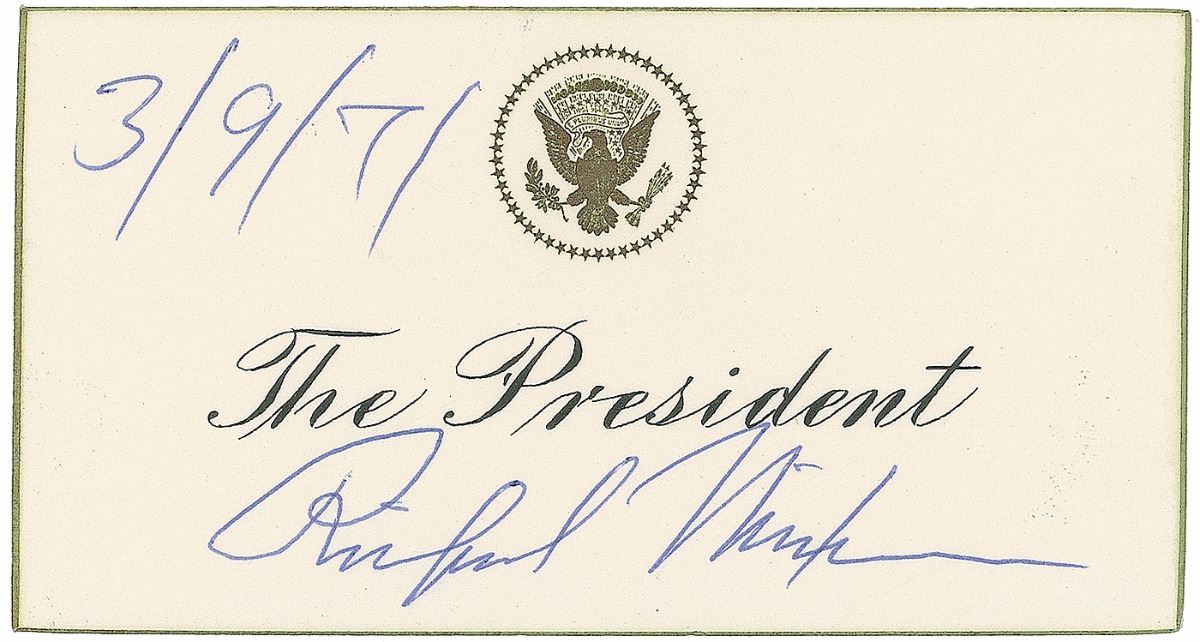 3/9/71
E PLURIBUS UNUM
The President
Richard Nixon